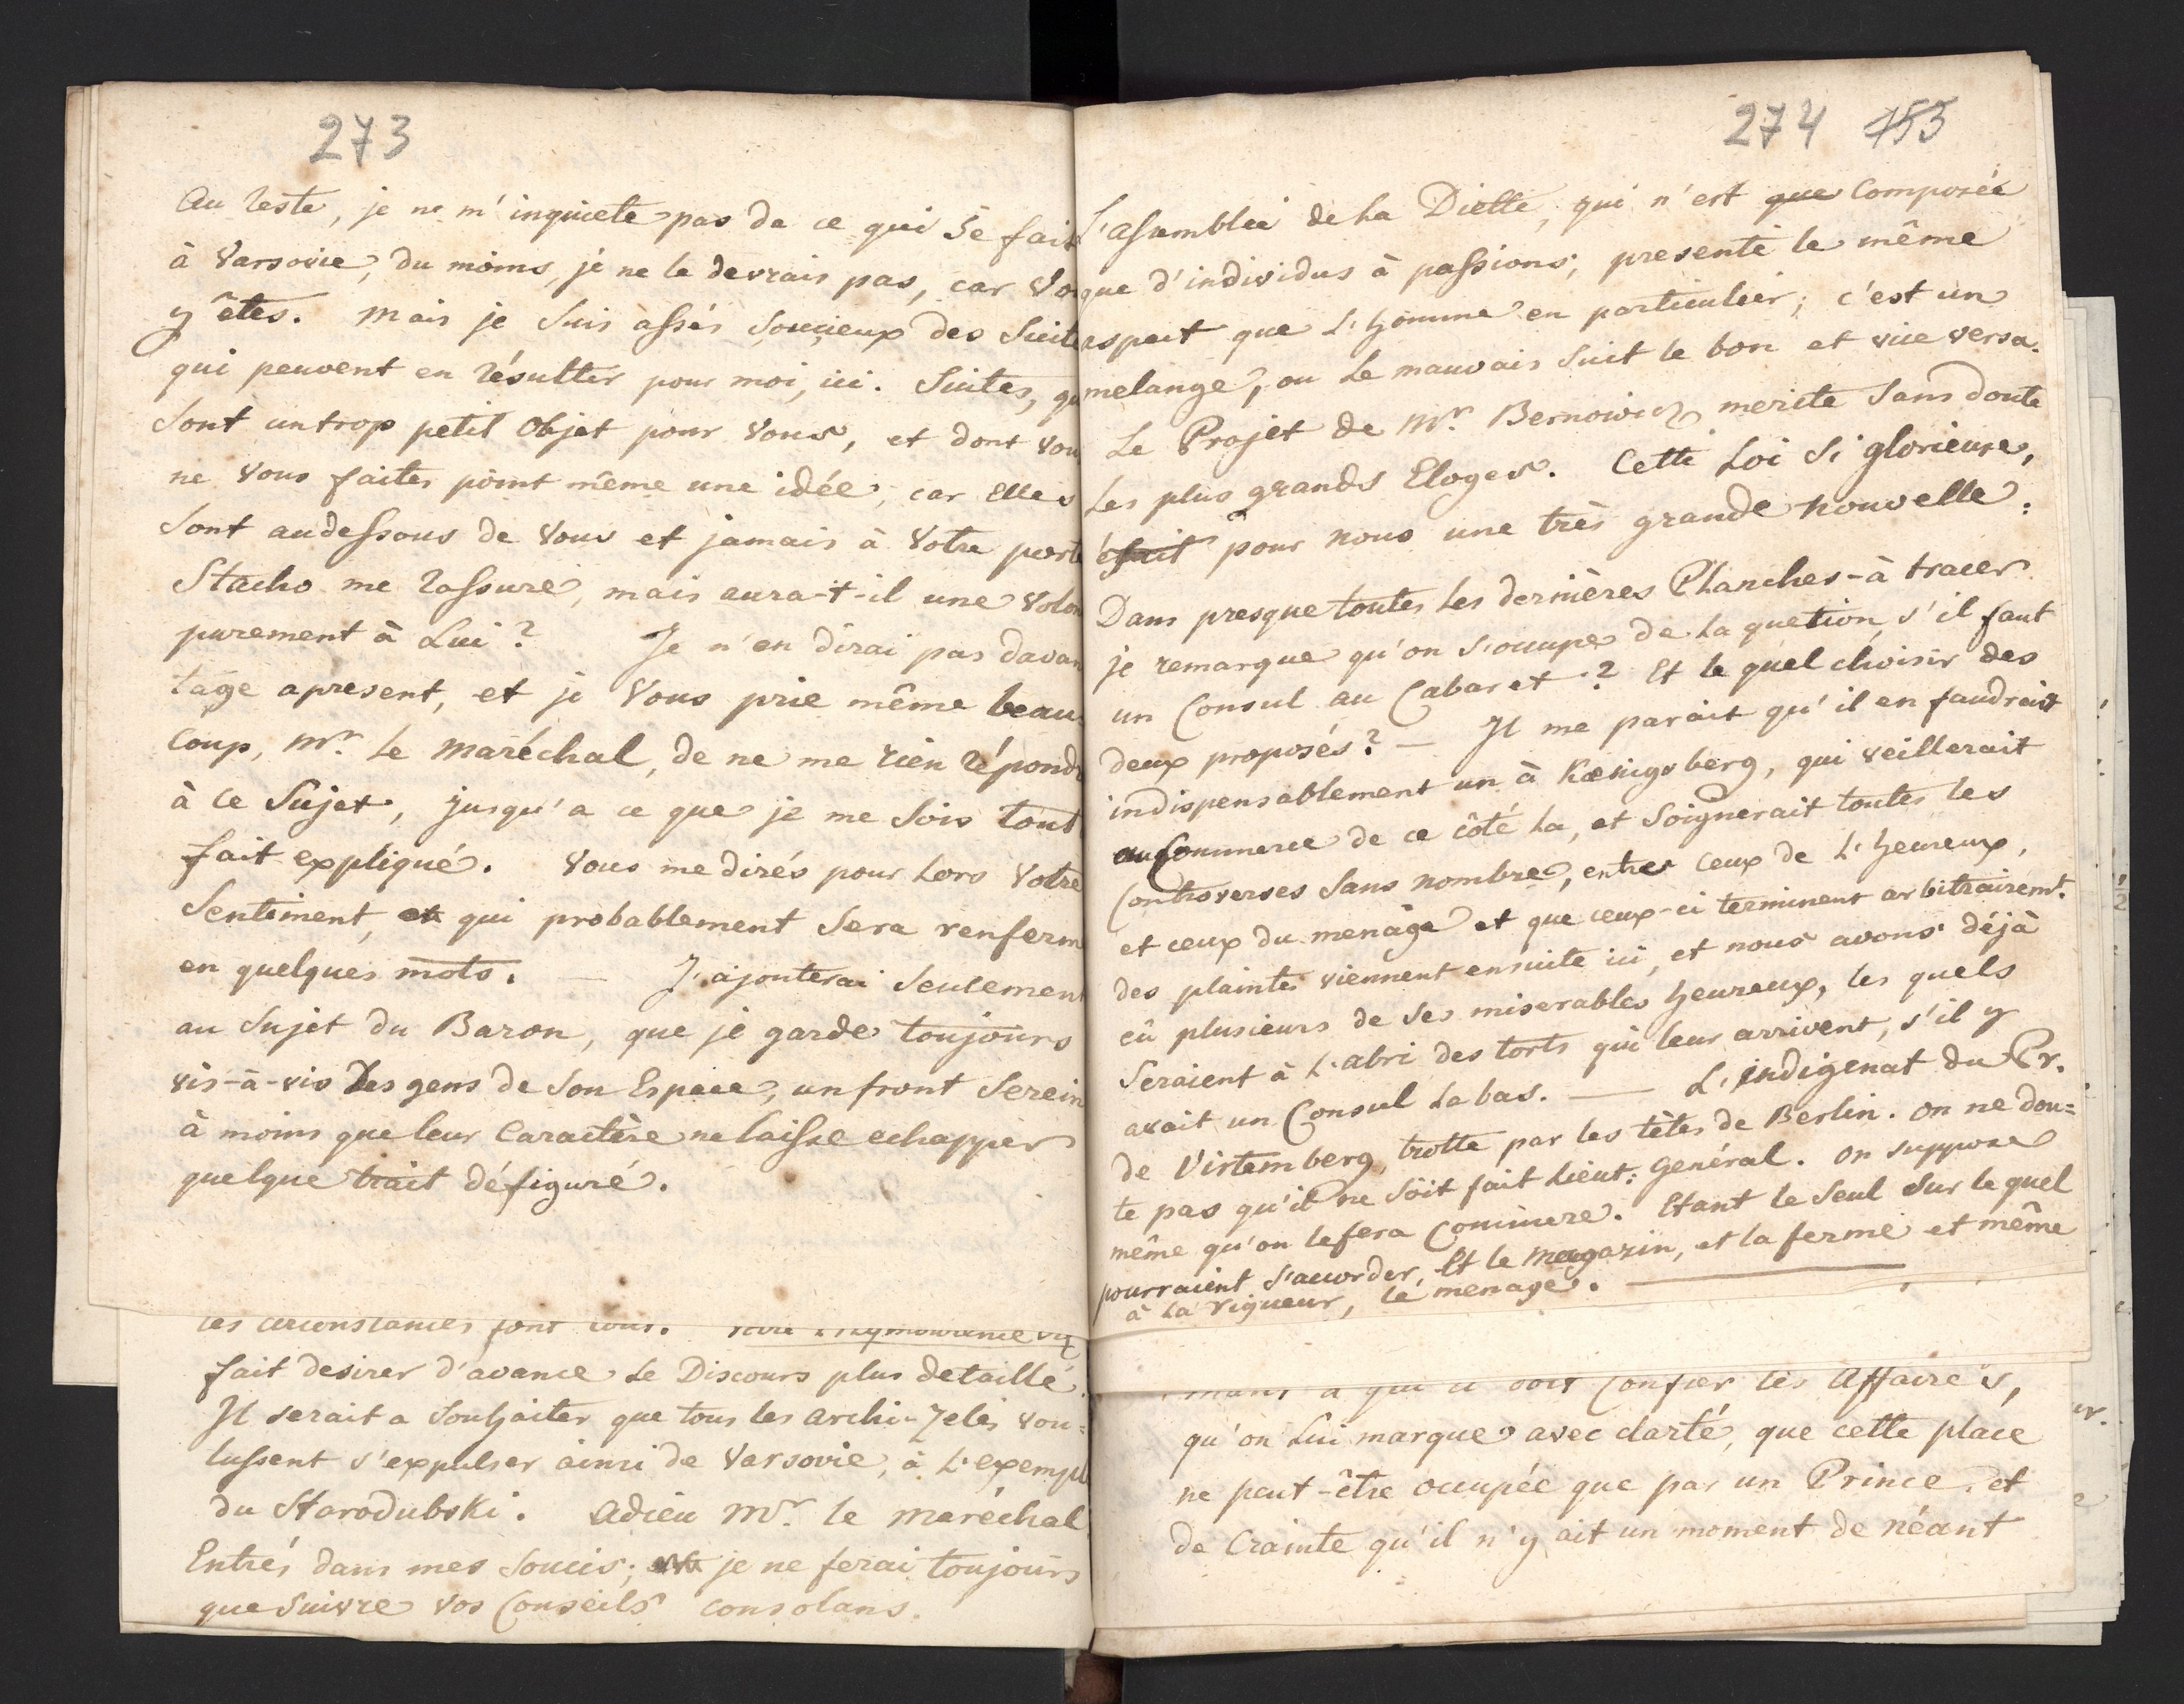 273
Au reste, je ne m'inquiete pas de ce qui se fait
à Varsovie, du moins, je ne le devrais pas, car Vo
y êtes. Mais je suis assés soucieux des Suite
qui peuvent en résulter pour moi, ici. Suites, qu
Sont un trop petit Objet pour Vous, et dont Vou
ne Vous faites point même une idée, car Elles
Sont audessous de Vous et jamais à Votre porté
Stacho me rassure, mais aura-t-il une Volon
purement à Lui? Je n'en dirai pas davan
tage apresent, et je Vous prie même beau-
coup, Mr. le Maréchal, de ne me rien répondr
à ce Sujet, jusqu'a ce que je me sois tout
fait expliqué. Vous me dirés pour Lors Votre
Sentiment, qui probablement Sera renferm
en quelques mots. — J'ajouterai Seulement
au Sujet du Baron, que je garde toujours
vis-à-vis des gens de Son Espece, un front Serein
à moins que leur Caractère ne laisse echapper
quelque trait défiguré.
les circonstances font tout.
fait desirer d'avance le Discours plus detaillé.
Il serait a Souhaiter que tous les archi-Zelés Vou=
lussent s'expulser ainsi de Varsovie, à L'exempl
du Starodubski. Adieu Mr. le Maréchal
Entrés dans mes Soucis; je ne ferai toujours
que Suivre vos Conseils consolans.
274 153
L'assemblée de la Diette, qui n'est que Composée
que d'individus à passions, presente le même
aspect que L'homme en particulier; c'est un
melange, ou le mauvais Suit le bon et vice versa.
Le Projet de Mr. Bernowicz merite Sans doute
les plus grands Eloges. Cette Loi Si glorieuse,
fait pour nous une très grande Nouvelle:
Dans presque toutes les dernières Planches-à tracer
je remarque qu'on s'occupe de la quetion, s'il faut
un Consul au Cabaret? Et le quel choisir des
deux proposés? — Il me parait qu'il en faudrait
indispensablement un à Kœnigsberg, qui veillerait
au Commerce de ce côté la, et Soignerait toutes les
Controverses Sans nombre, entre ceux de L'heureux,
et ceux du menage et que ceux-ci terminent arbitrairemt.
des plaintes viennent ensuite ici, et nous avons déjà
eû plusieurs de ses miserables heureux, les quels
Seraient à L'abri des torts qui leur arrivent, s'il y
avait un Consul la bas. — L'indigenat du Pr.
de Virtemberg, trotte par les têtes de Berlin. On ne dou=
te pas qu'il ne Soit fait Lieut: Général. On suppose
même qu'on le fera Commere. Etant le Seul Sur le quel
pourraient S'accorder, Et le Magazin, et la ferme et même
à la rigueur, le menage. —
à qui il doit Confier les Affaires,
qu'on Lui marque avec clarté, que cette place
ne peut-être occupée que par un Prince, et
de Crainte qu'il n'y ait un moment de Néant